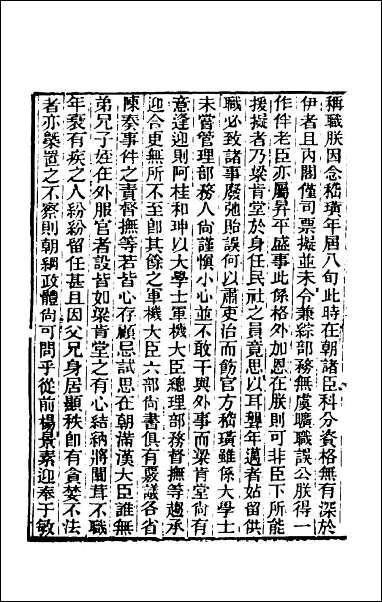 稱職朕因念嵇璜年屆八旬此時在朝諸臣科分資格無有深於
伊者且內閣僅司票擬並未令兼綜部務無虞曠職誤公朕得一
作伴老臣亦屬昇平盛事此係格外加恩在朕則可非臣下所能
援擬者乃梁肯堂於身任民社之員竟思以耳聾年邁者姑留供
職必致諸事廢弛貽誤何以肅吏治而飭官方嵇璜雖係大學士
未嘗管理部務人尙謹愼小心並不敢干與外事而梁肯堂尙有
意逢迎則阿桂和珅以大學士軍機大臣總理部務督撫等趨承
迎合更無所不至卽其餘之軍機大臣六部尙書俱有襄議各省
陳奏事件之責督撫等若皆心存顧忌試思在朝滿漢大臣誰無
弟兄子姪在外服官者設皆如梁肯堂之有心結納將闒茸不職
年衰有疾之人紛紛留任甚且因父兄身居顯秩卽有貪婪不法
者亦槩置之不察則朝綱政體尙可問乎從前楊景素迎奉于敏